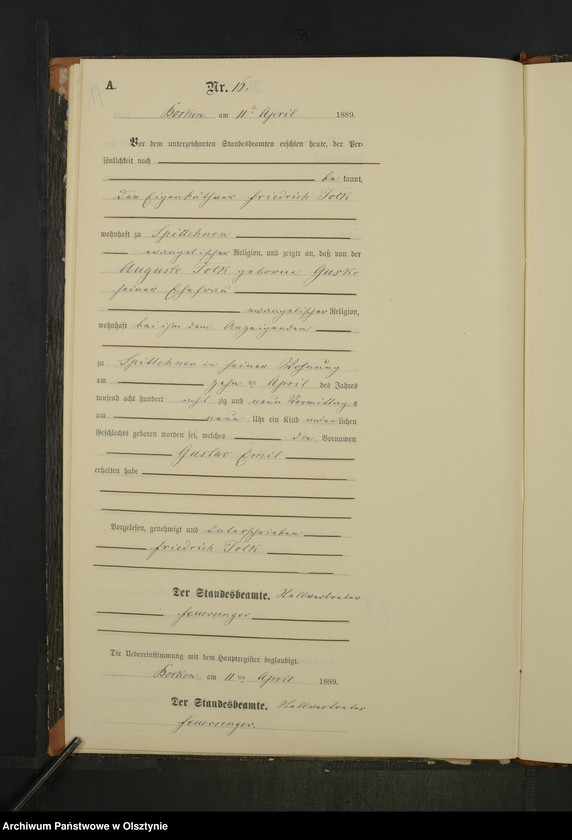 A.
Nr. 16.
Borken am 11t April 1889.
Vor dem unterzeichneten Standesbeamten erschien heute, der Per-
sönlichkeit nach
be kannt,
der Eigenkäthner Friedrich Tolk
wohnhaft zu Spittehnen
evangelischer Religion, und zeigte an, daß von der
Auguste Tolk geborene Guske
seiner Ehefrau
evangelischer Religion,
wohnhaft bei ihm dem Anzeigenden
zu Spittehnen in seiner Wohnung
am zehnten April des Jahres
tausend acht hundert acht zig und neun Vormittags
um neun Uhr ein Kind männlichen
Geschlechts geboren worden sei, welches die Vornamen
Gustav Emil
erhalten habe
Vorgelesen, genehmigt und unterschrieben
Friedrich Tolk
Der Standesbeamte. Stellvertreter
Feuersenger
Die Uebereinstimmung mit dem Hauptregister beglaubigt.
Borken am 11ten April 1889.
Der Standesbeamte. Stellvertreter
Feuersenger.
Archiwum Państwowe w Olsztynie